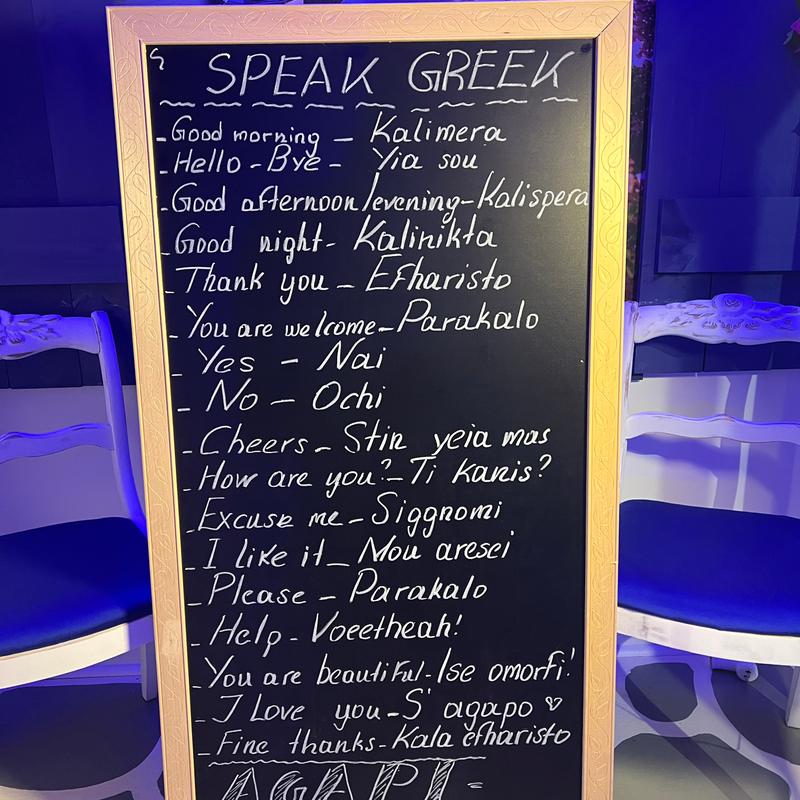 SPEAK GREEK
- Good morning - Kalimera
- Hello - Bye - Yia sou
- Good afternoon/evening - Kalispera
Good night - Kalinikta
- Thank you - Efharisto
- You are welcome - Parakalo
- Yes - Nai
- No - Ochi
- Cheers - Stin yeia mas
- How are you? - Ti kanis?
- Excuse me - Siggnomi
- I like it - Mou aresei
- Please - Parakalo
- Help - Voeetheah!
- You are beautiful - Ise omorfi!
- I Love you - S' agapo ♡
- Fine thanks - Kala efharisto
AGAPI =